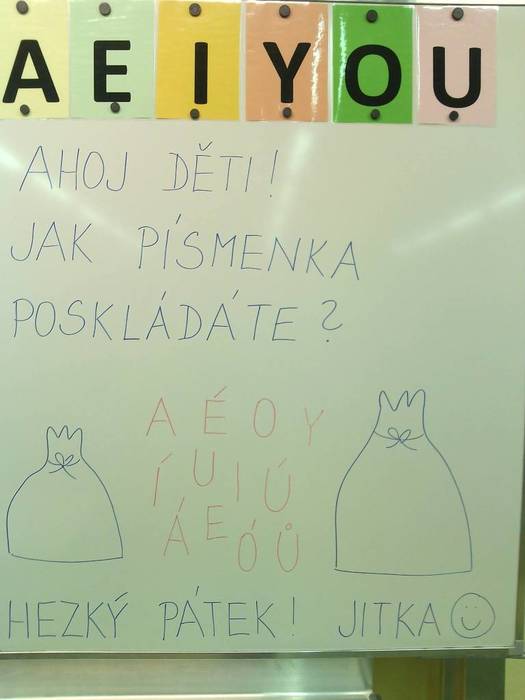 A E I Y O U
AHOJ DĚTI!
JAK PÍSMENKA
POSKLÁDÁTE?
A É O Y
Í U I Ú
Á E Ó Ů
HEZKÝ PÁTEK! JITKA